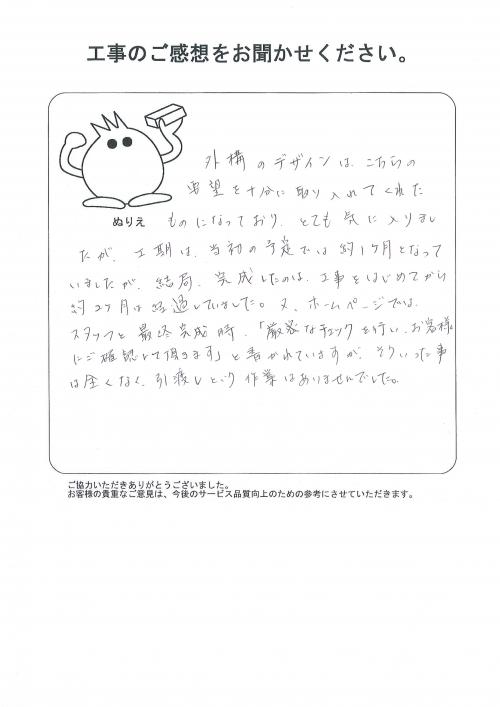 工事のご感想をお聞かせください。
外構のデザインは、こちらの
要望を十分に取り入れてくれた
ぬりえ
ものになっており、とても気に入りまし
たが、工期は、当初の予定では約1ヶ月となって
いましたが、結局、完成したのは、工事をはじめてから
約2ヶ月は経過していました。又、ホームページでは、
スタッフと最終完成時、「厳密なチェックを行い、お客様
にご確認して頂きます」と書かれていますが、そういった事
は全くなく、引渡しという作業はありませんでした。
ご協力いただきありがとうございました。
お客様の貴重なご意見は、今後のサービス品質向上のための参考にさせていただきます。